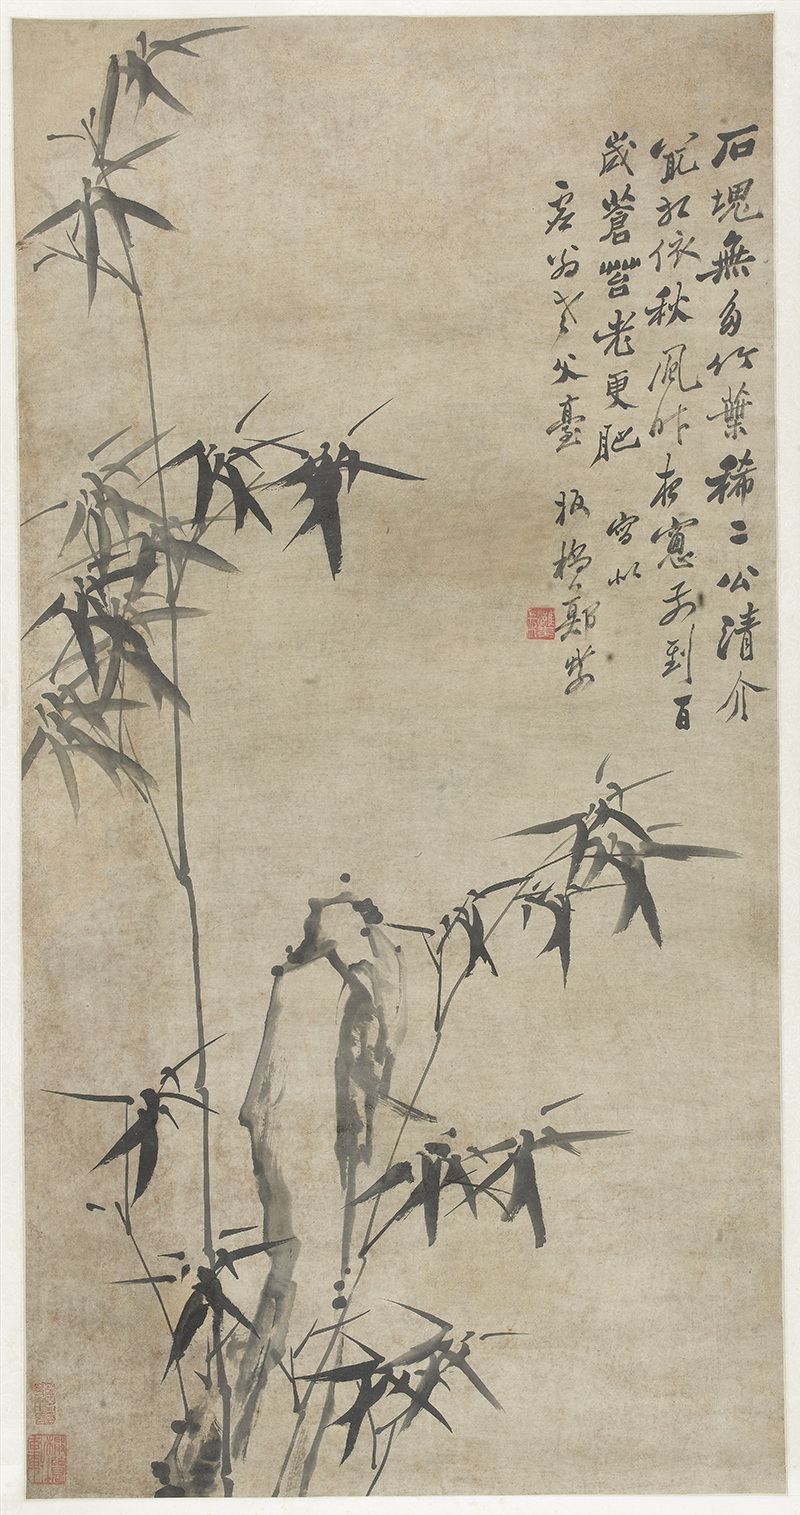 石塊無多竹葉稀二公清介
㝡相依秋風昨夜窗前到百
歲蒼苔老更肥 寫似
老父臺 板橋鄭燮